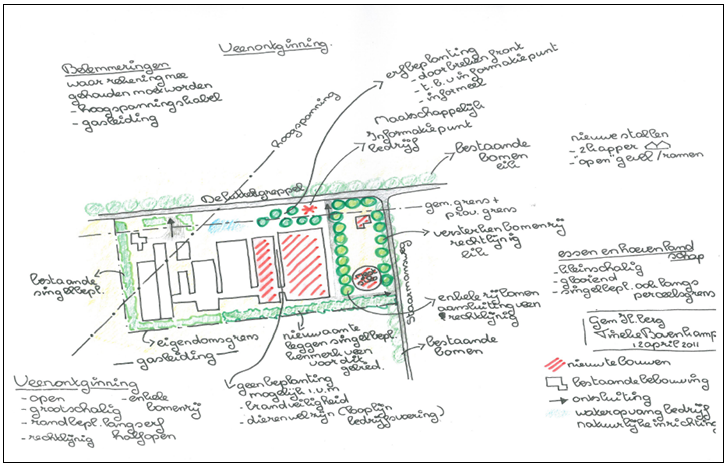 Veenontginning
Belemmeringen
waar rekening mee
gehouden moet worden
- hoogspanningskabel
- gasleiding
hoogspanning
erfbeplanting
- doorbreken front
- t.b.v. informatiepunt
- informeel
Maatschappelijk
Informatiepunt
bedrijf
bestaande
bomen
eik
nieuwe stallen
- 2 kapper
- "open" gevel/ramen
gem. grens +
prov. grens
versterken bomenrij
rechtlijnig
eik
essen en hoevenland
schap
- kleinschalig
- glooiend
- singelbepl. ook langs
perceelsgrens
bestaande
singelbepl.
enkele rij bomen
aansluiting veen
rechtlijnig
bestaande
bomen
eigendomsgrens
gasleiding
nieuw aan te
leggen singelbepl.
kenmerk veen
voor dit
gebied.
geen beplanting
mogelijk i.v.m
- brandveiligheid
- dierenwelzijn (looplijn
bedrijfsvoering)
Veenontginning
- open
- grootschalig
- randbepl. langs erf
- rechtlijnig
- enkele
bomenrij
halfopen
12 april 2011
nieuw te bouwen
bestaande bebouwing
ontsluiting
wateropvang bedrijf
natuurlijke inrichting